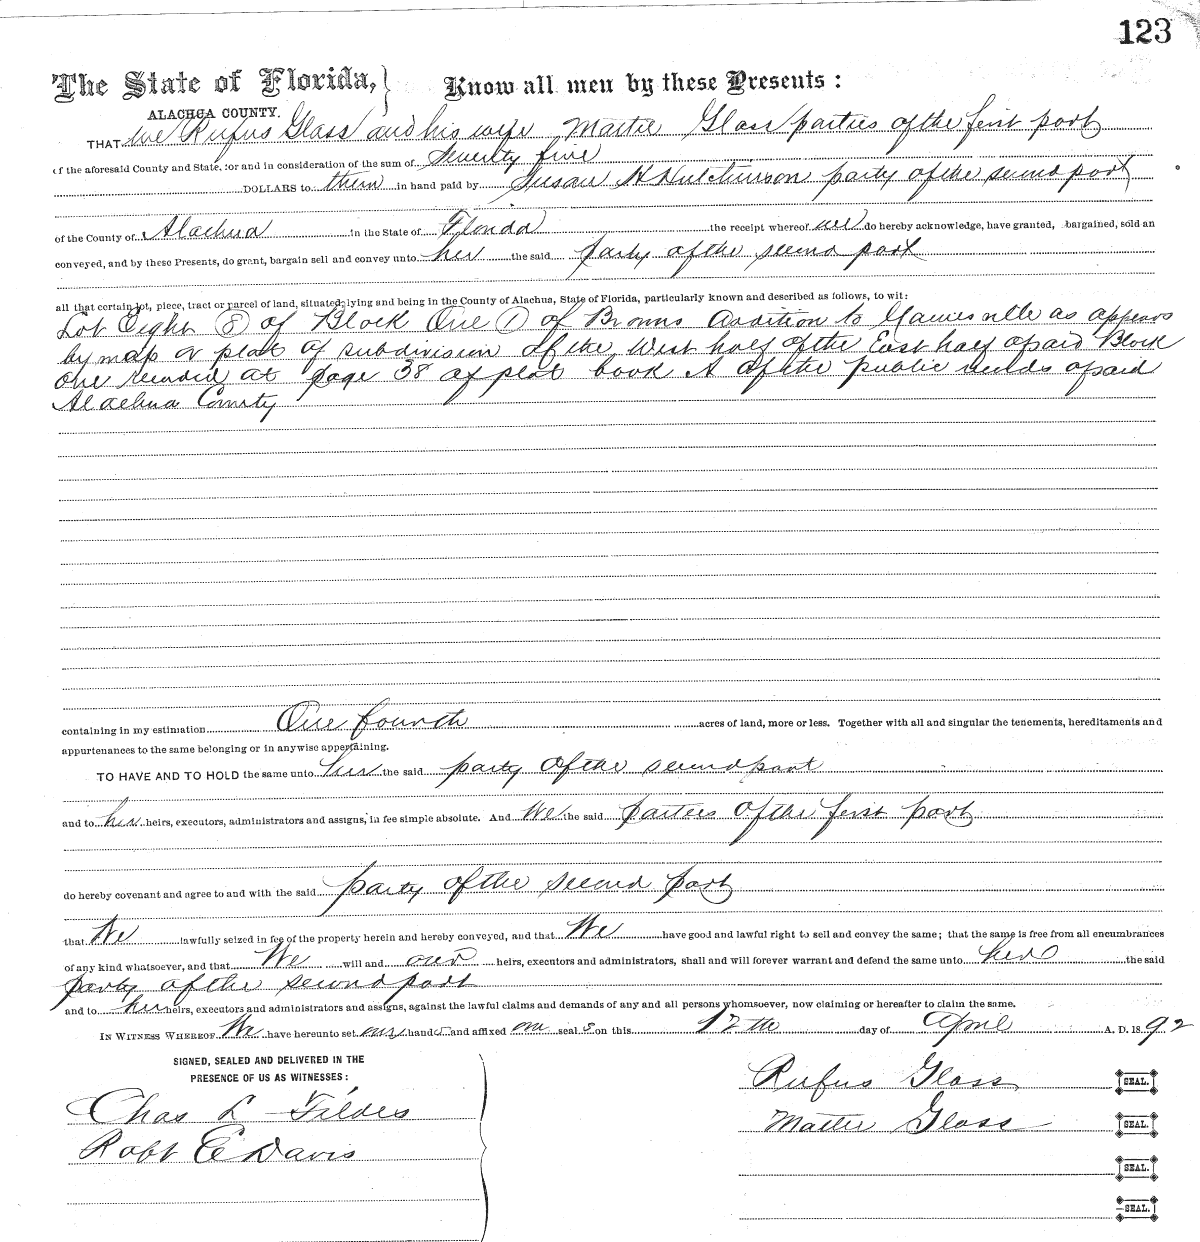 123
The State of Florida, Know all men by these Presents:
ALACHUA COUNTY.
THAT we Rufus Glass and his wife Mattie Glass parties of the first part
of the aforesaid County and State, for and in consideration of the sum of Seventy five
DOLLARS to them in hand paid by Susan H Hutchinson party of the second part
of the County of Alachua in the State of Florida the receipt whereof we do hereby acknowledge, have granted, bargained, sold an
conveyed, and by these Presents, do grant, bargain sell and convey unto her the said party of the second part
all that certain lot, piece, tract or parcel of land, situated, lying and being in the County of Alachua, State of Florida, particularly known and described as follows, to wit:
Lot Eight (8) of Block One (1) of Browns Addition to Gainesville as appears
by map or plat of subdivision of the West half of the East half of said Block
One recorded at page 38 of plat book A of the public records of said
Alachua County
containing in my estimation One fourth acres of land, more or less. Together with all and singular the tenements, hereditaments and
appurtenances to the same belonging or in anywise appertaining.
TO HAVE AND TO HOLD the same unto her the said party of the second part
and to her heirs, executors, administrators and assigns, in fee simple absolute. And We the said parties of the first part
do hereby covenant and agree to and with the said party of the second part
that We lawfully seized in fee of the property herein and hereby conveyed, and that We have good and lawful right to sell and convey the same; that the same is free from all encumbrances
of any kind whatsoever, and that We will and our heirs, executors and administrators, shall and will forever warrant and defend the same unto her the said
party of the second part
and to her heirs, executors and administrators and assigns, against the lawful claims and demands of any and all persons whomsoever, now claiming or hereafter to claim the same.
IN WITNESS WHEREOF We have hereunto set our hand s and affixed our seal s on this 12th day of April A. D. 18 92
SIGNED, SEALED AND DELIVERED IN THE
PRESENCE OF US AS WITNESSES:
Rufus Glass SEAL.
Chas L Fildes
Mattie Glass SEAL.
Robt E Davis
SEAL.
SEAL.